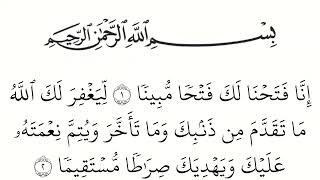 بِسْمِ ٱللَّهِ ٱلرَّحْمَٰنِ ٱلرَّحِيمِ
إِنَّا فَتَحْنَا لَكَ فَتْحًا مُّبِينًا ١ لِّيَغْفِرَ لَكَ ٱللَّهُ
مَا تَقَدَّمَ مِن ذَنۢبِكَ وَمَا تَأَخَّرَ وَيُتِمَّ نِعْمَتَهُۥ
عَلَيْكَ وَيَهْدِيَكَ صِرَٰطًا مُّسْتَقِيمًا ٢